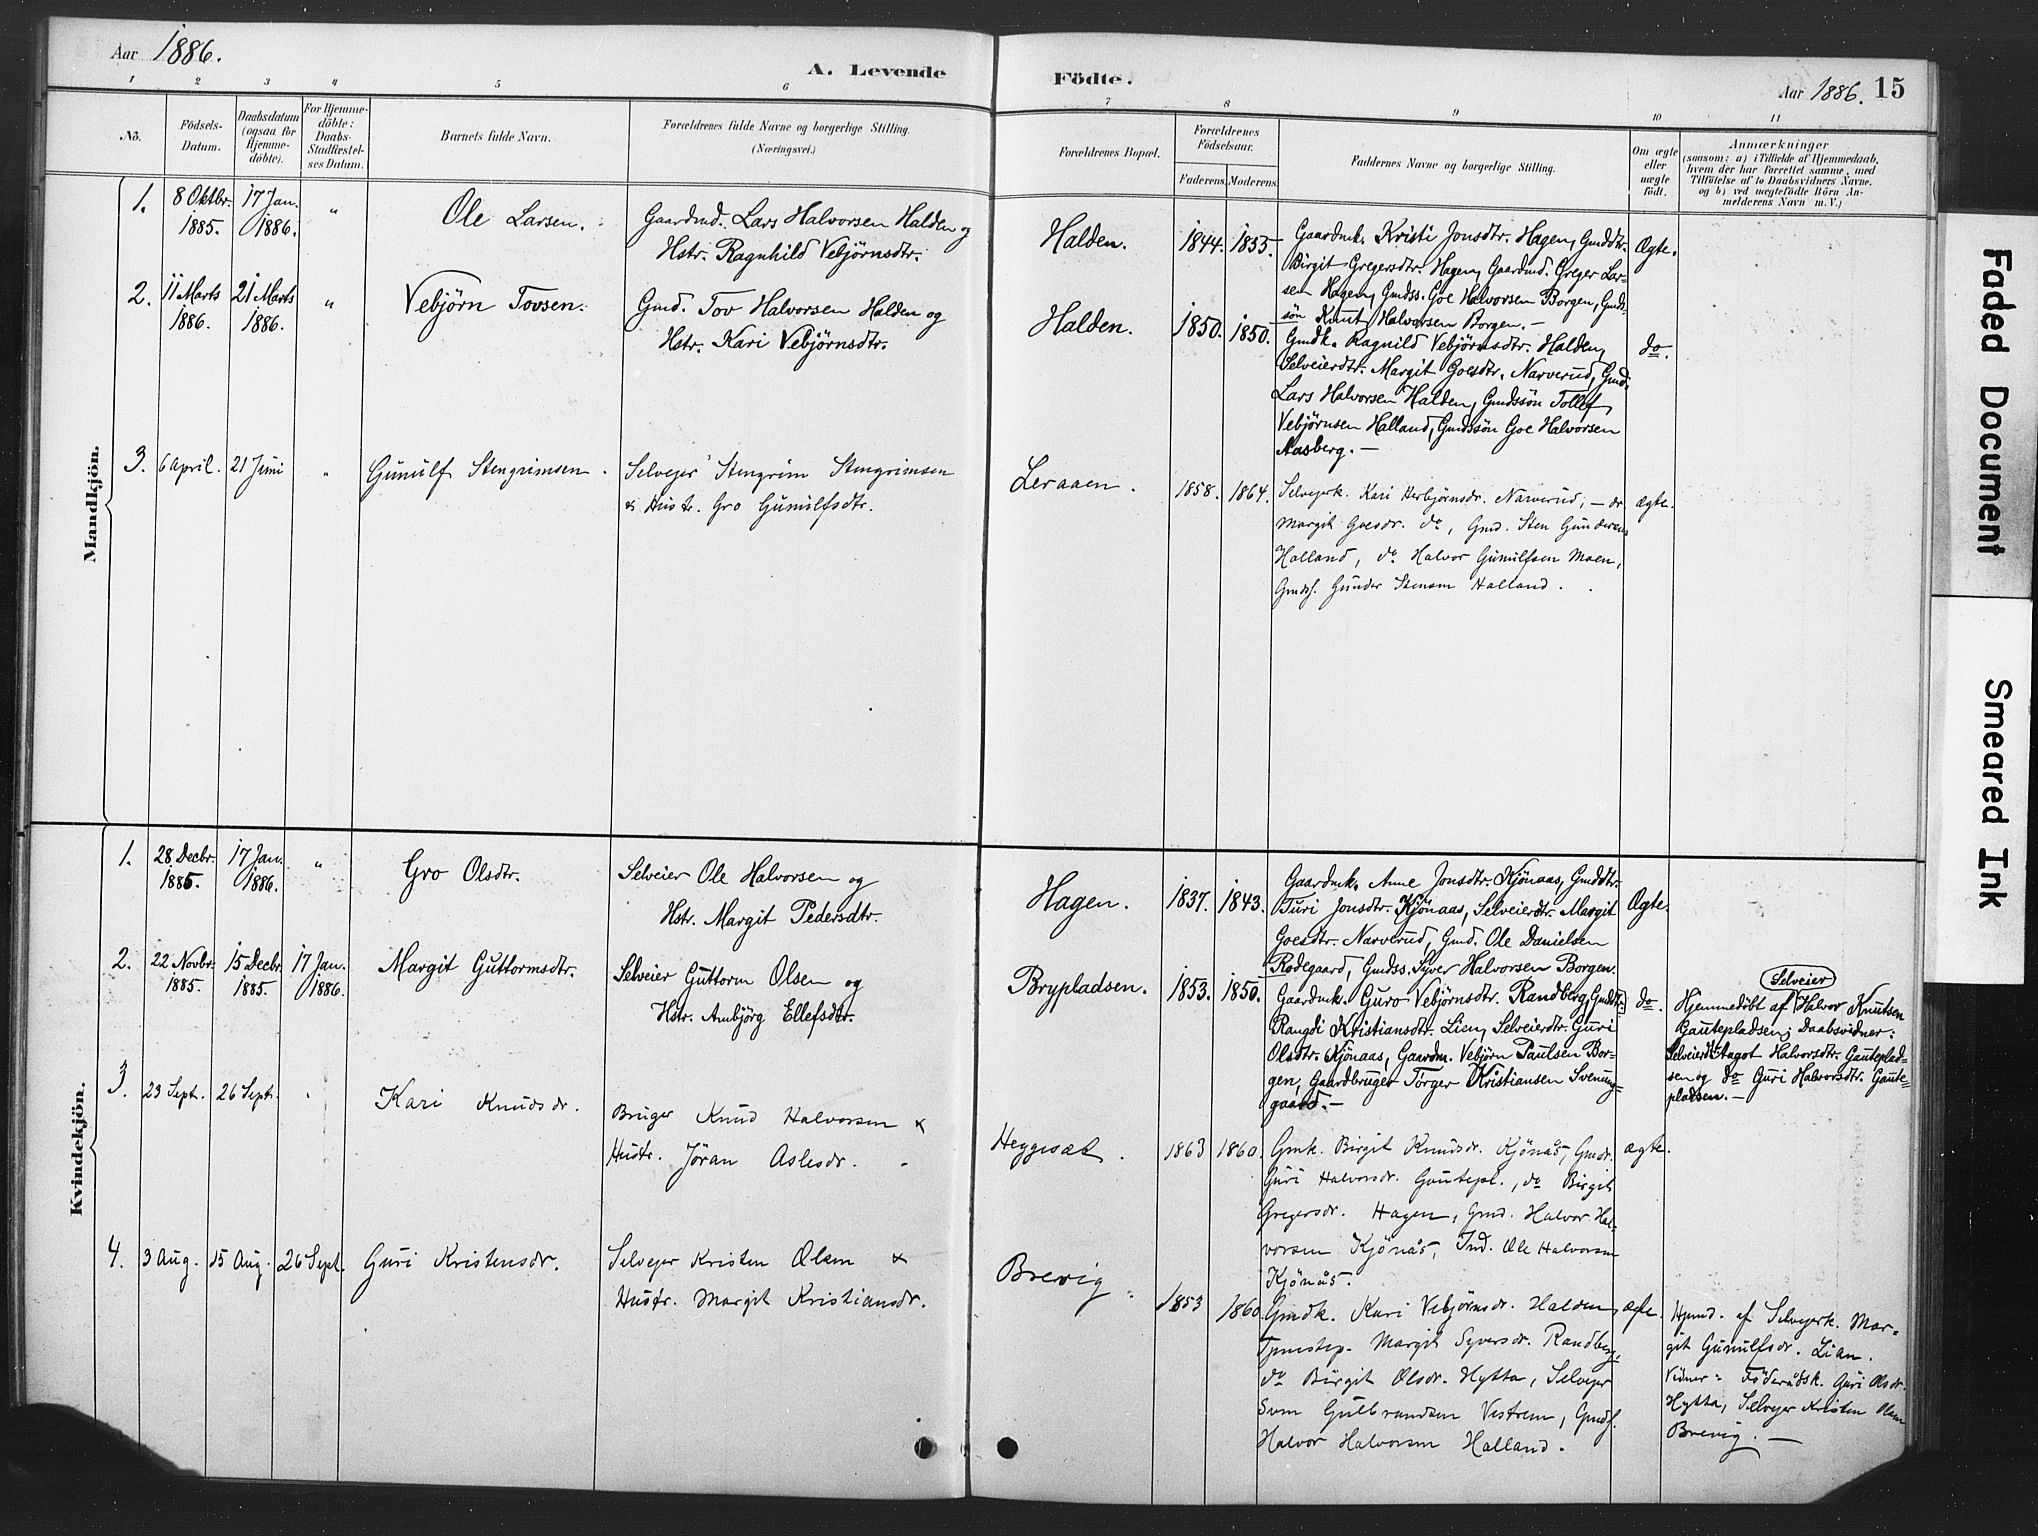 Aar 1886.
A. Levende
Födte.
Aar 1886. 15
1 2 3 4 5 6 7 8 9 10 11
No.
Födsels-
Datum.
Daabsdatum
(ogsaa for
Hjemme-
döbte).
For Hjemme-
döbte:
Daabs-
Stadfæstel-
ses Datum.
Barnets fulde Navn.
Forældrenes fulde Navne og borgerlige Stilling.
(Næringsvei.)
Forældrenes Bopæl.
Forældrenes
Födselsaar.
Faderens. Moderens.
Faddernes Navne og borgerlige Stilling.
Om ægte
eller
uægte
födt.
Anmærkninger
(saasom: a) i Tilfælde af Hjemmedaab,
hvem der har forrettet samme, med
Tilföielse af to Daabsvidners Navne,
og b) ved uægtefödte Börn An-
melderens Navn m. V.)
Mandkjön.
1.
8 Oktbr.
1885.
17 Jan.
1886.
"
Ole Larsen.
Gaardmd. Lars Halvorsen Halden og
Hstr. Ragnhild Vebjørnsdtr.
Halden.
1844. 1855.
Gaardmk. Kristi Jonsdtr. Hagen, Gmddtr.
Birgit Gregersdtr. Hagen, Gaardmd. Greger Lar-
sen Hagen, Gmdss. Goe Halvorsen Borgen, Gmd-
søn Knut Halvorsen Borgen. —
Ægte.
2.
11 Marts
1886.
21 Marts
1886.
"
Vebjörn Tovsen.
Gmd. Tov Halvorsen Halden og
Hstr. Kari Vebjørnsdtr.
Halden.
1850. 1850.
Gmdk. Ragnild Vebjørnsdtr. Halden,
Selveierdtr. Margit Goesdtr. Narverud, Gmd.
Lars Halvorsen Halden, Gmdssøn Tollef
Vebjørnsen Halland, Gmdssøn Goe Halvorsen
Aasberg. —
do.
3.
6 April.
21 Juni
"
Gunulf Stengrimsen.
Selvejer Stengrim Stengrimsen
& Hustr. Gro Gunulfsdtr.
Leraaen.
1858. 1864.
Selvejerk. Kari Herbjørnsdr. Narverud, — dr
Margit Goesdr. do, Gmd. Sten Gundersen
Halland, do Halvor Gunulfsen Moen,
Gmdsf. Gunder Stensen Halland.
ægte.
Kvindekjön.
1.
28 Decbr.
1885.
17 Jan.
1886.
"
Gro Olsdtr.
Selveier Ole Halvorsen og
Hstr. Margit Pedersdtr.
Hagen.
1837. 1843.
Gaardmk. Anne Jonsdtr. Kjönaas, Gmddtr.
Turi Jonsdtr. Kjönaas, Selveierdtr. Margit
Goesdtr. Narverud, Gmd. Ole Danielsen
Rodegaard, Gmdss. Syver Halvorsen Borgen.
Ægte.
2.
22 Novbr.
1885.
15 Decbr.
1885.
17 Jan.
1886.
Margit Guttormsdtr.
Selveier Guttorm Olsen og
Hstr. Ambjörg Ellefsdtr.
Brypladsen.
1853. 1850.
Gaardmk. Guro Vebjörnsdtr. Randberg, Gmddtr.
Rangdi Kristiansdtr. Lien, Selveierdtr. Guri
Olsdtr. Kjönaas, Gaardm. Vebjörn Paulsen Bor-
gen, Gaardbruger Törger Kristiansen Svenung-
gaard. —
do.
Selveier
Hjemmedöbt af Halvor Knutsen
Gautepladsen; Daabsvidner:
Selveierdtr. Aagot Halvorsdtr. Gauteplad-
sen og do Guri Halvorsdtr. Gaute-
pladsen. —
3.
23 Sept.
26 Sept.
"
Kari Knudsdr.
Bruger Knud Halvorsen &
Hustr. Jöran Aslesdr.
Heggesæt.
1863 1860.
Gmk. Birgit Knudsdr. Kjönås, Gmdr.
Guri Halvorsdr. Gautepl., do Birgit
Gregersdr. Hagen, Gmd. Halvor Hal-
vorsen Kjönås, Ind. Ole Halvorsen
Kjönås.
ægte.
4.
3 Aug.
15 Aug.
26 Sept.
Guri Kristensdr.
Selvejer Kristen Olsen &
Hustr. Margit Kristiansdr.
Brevig.
1853 1860
Gmdk. Kari Vebjørnsdr. Halden,
Tjenestep. Margit Syversdr. Randberg,
do Birgit Olsdr. Hytta, Selvejer
Sven Gulbrandsen Vestrem, Gmdsf.
Halvor Halvorsen Halland.
ægte.
Hjemd. af Selvejerk. Mar-
git Gunulfsdr. Lian.
Vidner: Föderådsk. Guri Olsdr.
Hytta, Selvejer Kristen Olsen
Brevig. —
Faded Document
Smeared Ink